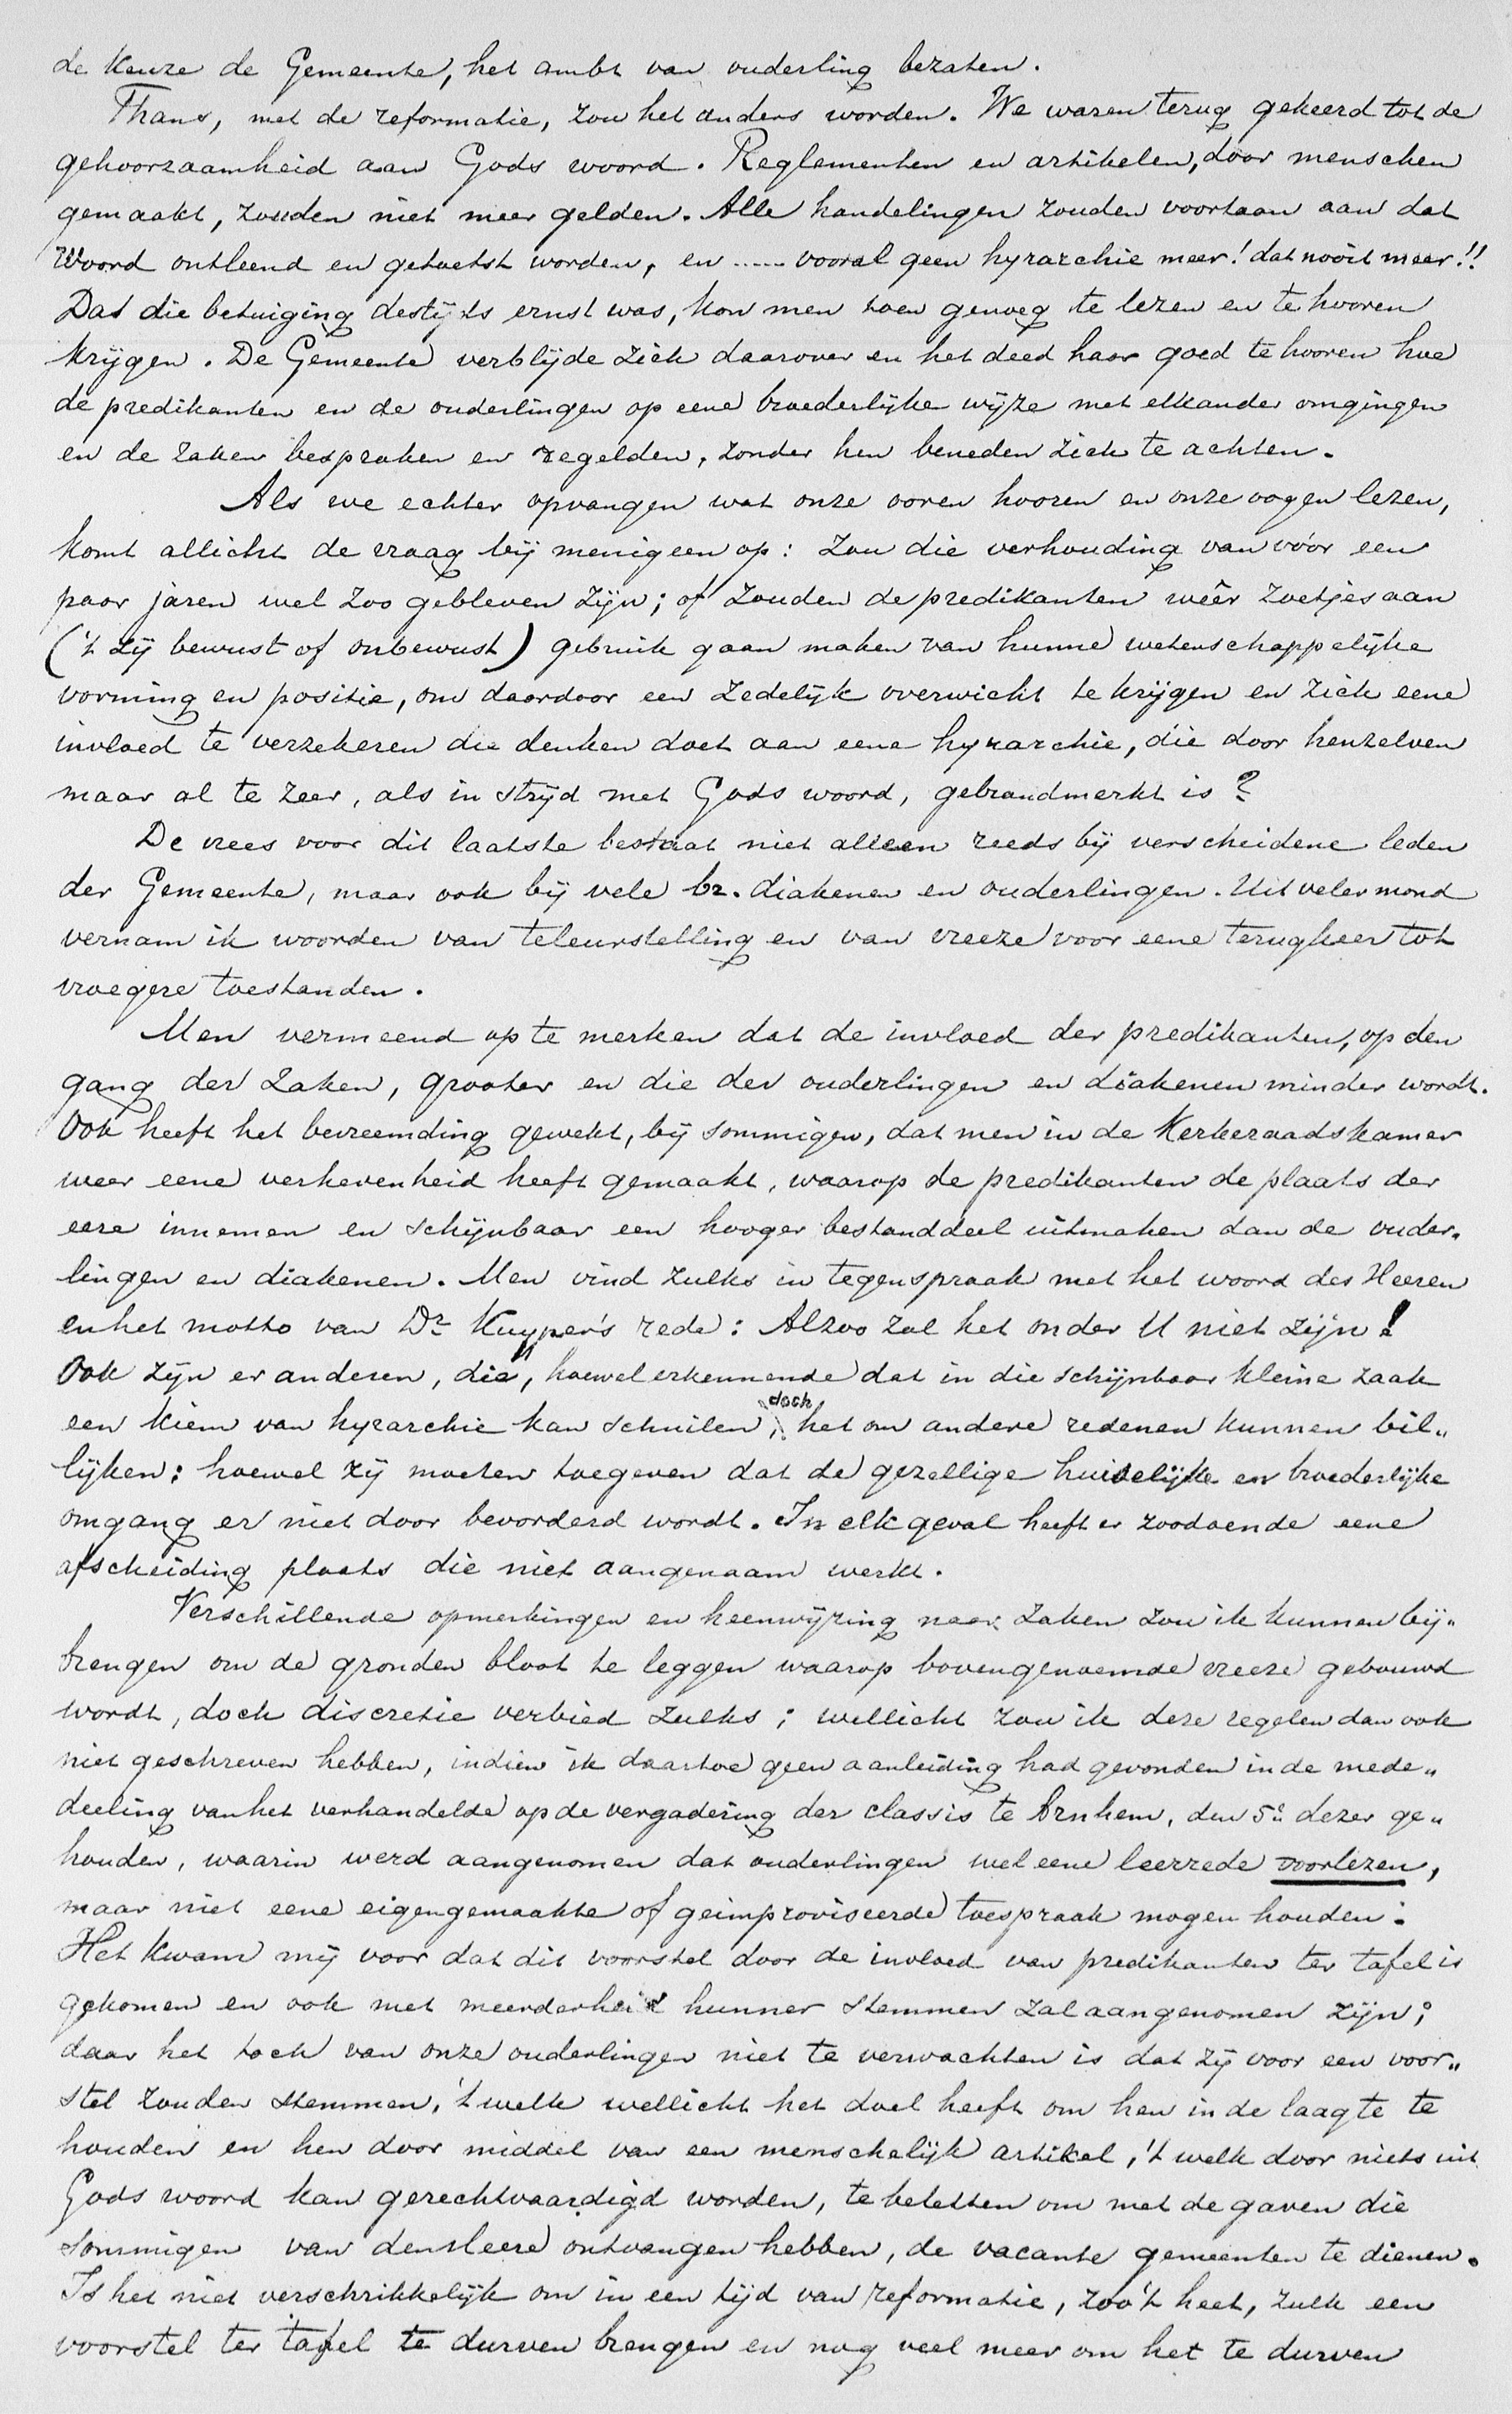 de keuze de Gemeente, het ambt van ouderling bezaten.
Thans, met de reformatie, zou het anders worden. We waren terug gekeerd tot de
gehoorzaamheid aan Gods woord. Reglementen en artikelen, door menschen
gemaakt, zouden niet meer gelden. Alle handelingen zouden voortaan aan dat
Woord ontleend en getoetst worden, en ..... vooral geen hyrarchie meer! dat nooit meer!!
Dat die betuiging destijds ernst was, kon men toen genoeg te lezen en te hooren
krijgen. De Gemeente verblijde zich daarover en het deed haar goed te hooren hoe
de predikanten en de ouderlingen op eene broederlijke wijze met elkander omgingen
en de zaken bespraken en regelden, zonder hen beneden zich te achten.
Als we echter opvangen wat onze ooren hooren en onze oogen lezen,
komt allicht de vraag bij menigeen op: zou die verhouding van vóór een
paar jaren wel zoo gebleven zijn; of zouden de predikanten wêêr zoetjes aan
('t zij bewust of onbewust) gebruik gaan maken van hunne wetenschappelijke
vorming en positie, om daardoor een zedelijk overwicht te krijgen en zich eene
invloed te verzekeren die denken doet aan eene hyrarchie, die door henzelven
maar al te zeer, als in strijd met Gods woord, gebrandmerkt is?
De vrees voor dit laatste bestaat niet alleen reeds bij verscheidene leden
der Gemeente, maar ook bij vele br. diakenen en ouderlingen. Uit veler mond
vernam ik woorden van teleurstelling en van vreeze voor eene terugkeer tot
vroegere toestanden.
Men vermeend op te merken dat de invloed der predikanten, op den
gang der zaken, grooter en die der ouderlingen en diakenen minder wordt.
Ook heeft het bevreemding gewekt, bij sommigen, dat men in de Kerkeraadskamer
weer eene verhevenheid heeft gemaakt, waarop de predikanten de plaats der
eere innemen en schijnbaar een hooger bestanddeel uitmaken dan de ouder„
lingen en diakenen. Men vind zulks in tegenspraak met het woord des Heeren
en het motto van Dr Kuyper's rede: Alzoo zal het onder U niet zijn!
Ook zijn er anderen, die, hoewel erkennende dat in die schijnbaar kleine zaak
een kiem van hyrarchie kan schuilen, doch het om andere redenen kunnen bil„
lijken: hoewel zij moeten toegeven dat de gezellige huiselijke en broederlijke
omgang er niet door bevorderd wordt. In elk geval heeft er zoodoende eene
afscheiding plaats die niet aangenaam werkt.
Verschillende opmerkingen en heenwijzing naar zaken zou ik kunnen bij„
brengen om de gronden bloot te leggen waarop bovengenoemde vreeze gebouwd
wordt, doch discretie verbied zulks; wellicht zou ik deze regelen dan ook
niet geschreven hebben, indien ik daartoe geen aanleiding had gevonden in de mede„
deeling van het verhandelde op de vergadering der classis te Arnhem, den 5e dezer ge„
houden, waarin werd aangenomen dat ouderlingen wel eene leerrede voorlezen,
maar niet eene eigengemaakte of geimproviseerde toespraak mogen houden.
Het kwam mij voor dat dit voorstel door de invloed van predikanten ter tafel is
gekomen en ook met meerderheid hunner stemmen zal aangenomen zijn;
daar het toch van onze ouderlingen niet te verwachten is dat zij voor een voor„
stel zouden stemmen, 't welk wellicht het doel heeft om hen in de laagte te
houden en hen door middel van een menschelijk artikel, 't welk door niets uit
Gods woord kan gerechtvaardigd worden, te beletten om met de gaven die
sommigen van den Heere ontvangen hebben, de vacante gemeenten te dienen.
Is het niet verschrikkelijk om in een tijd van reformatie, zoo 't heet, zulk een
voorstel ter tafel te durven brengen en nog veel meer om het te durven